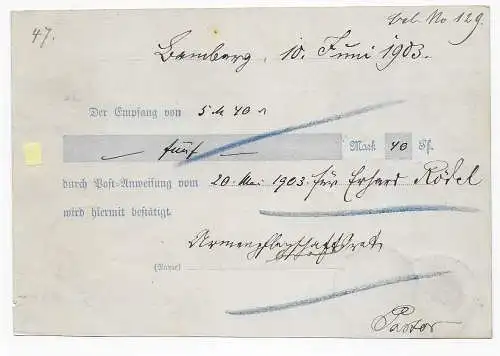 47.
beb. No 129.
Bamberg, 10. Juni 1903.
Der Empfang von 5 M 40 ₰
— fünf — Mark 40 Pf.
durch Post-Anweisung vom 20. Mai 1903 für Erhard Rödel
wird hiermit bestätigt.
Armenpflegschaftsrat
(Name)
Pastor